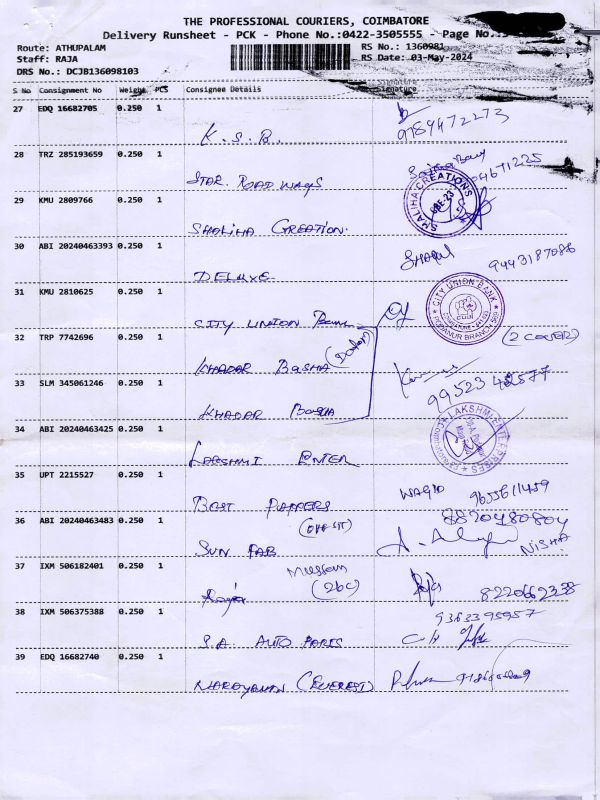 THE PROFESSIONAL COURIERS, COIMBATORE
Delivery Runsheet - PCK - Phone No.:0422-3505555 - Page No.:
Route: ATHUPALAM RS No.: 1360981
Staff: RAJA RS Date: 03-May-2024
DRS No.: DCJB136098103
S No Consignment No Weight PCS Consignee Details Signature
27 EDQ 16682705 0.250 1 K.S.B. 9789472273
28 TRZ 285193659 0.250 1 STAR ROAD WAYS 04671225
29 KMU 2809766 0.250 1 SHALIHA CREATION SHALIHA CREATIONS
30 ABI 20240463393 0.250 1 DELUXE 9443187086
31 KMU 2810625 0.250 1 CITY UNION Bank CITY UNION BANK
32 TRP 7742696 0.250 1 KHADAR BASHA (2 COVER)
33 SLM 345061246 0.250 1 KHADAR BASHA 99523
34 ABI 20240463425 0.250 1 LAKSHMI ENTER LAKSHMI ENTERPRISES
35 UPT 2215527 0.250 1 BEST PAPPERS 9655611459
36 ABI 20240463483 0.250 1 SUN FAB 8870480804
NISHA
37 IXM 506182401 0.250 1 Raja (26C) Raja 8220662338
38 IXM 506375388 0.250 1 S.A. AUTO PARTS 9363395957
39 EDQ 16682740 0.250 1 NARAYANAN (EVEREST)